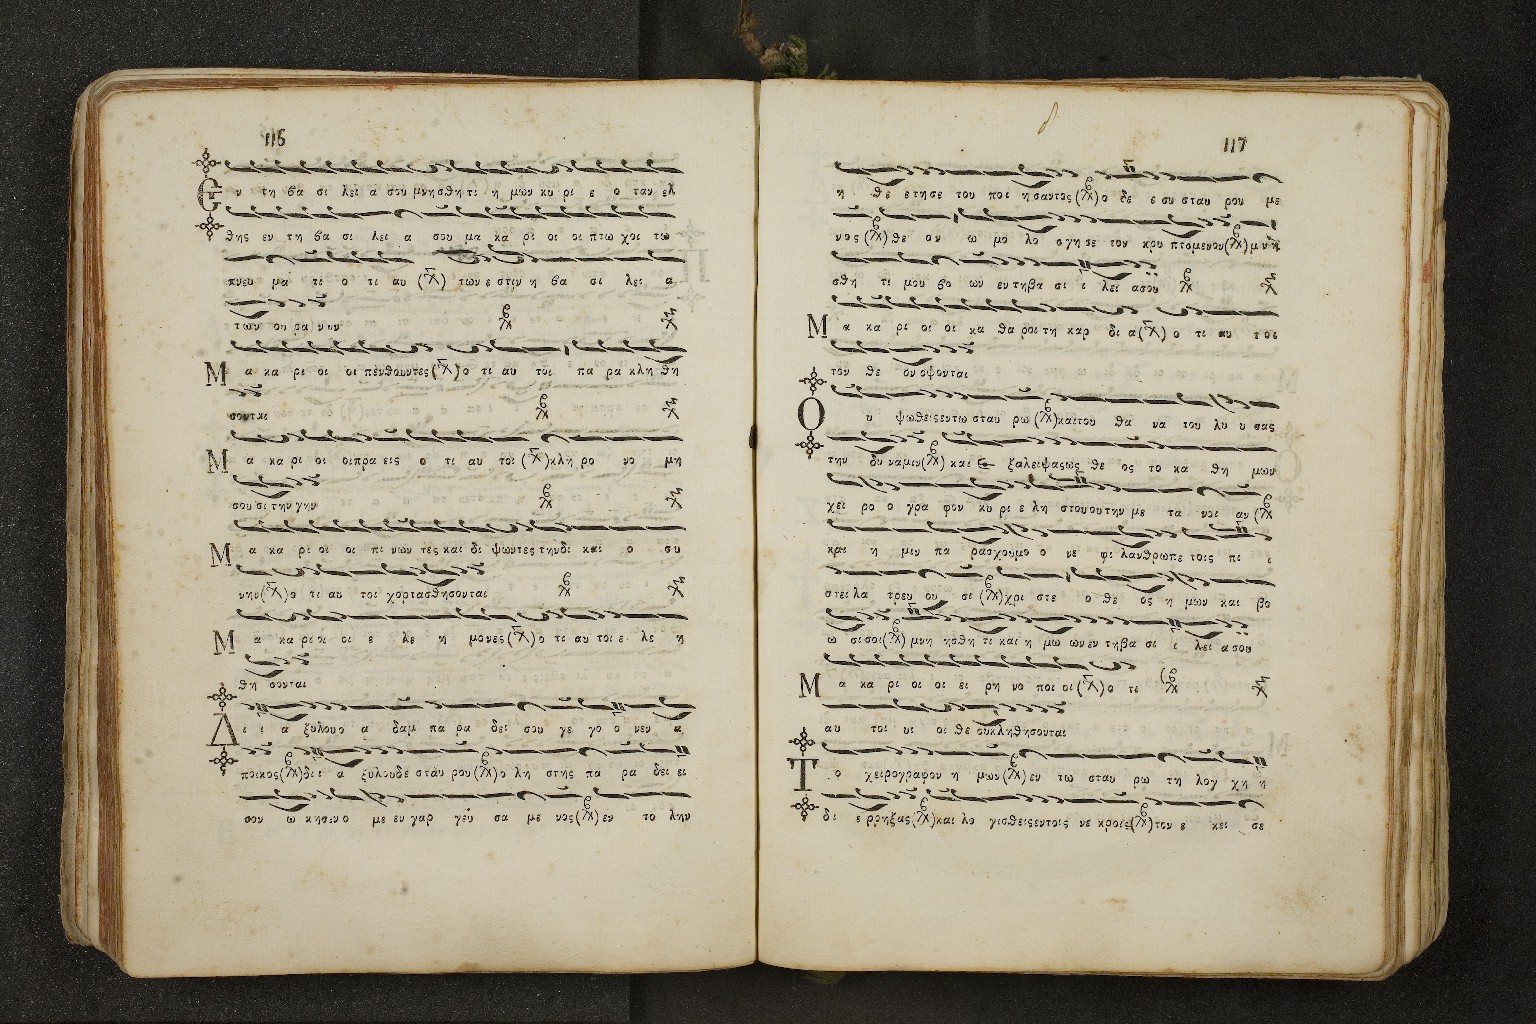 116
Εν τη βα σι λει α σου μνησθη τι η μων κυ ρι ε ο ταν ελ
θης εν τη βα σι λει α σου μα κα ρι οι οι πτω χοι τω
πνευ μα τι ο τι αυ των ε στιν η βα σι λει α
των ου ρα νων
Μ α κα ρι οι οι πενθουντες ο τι αυ τοι πα ρα κλη θη
σονται
Μ α κα ρι οι οιπρα εις ο τι αυ τοι κλη ρο νο μη
σου σι την γην
Μ α κα ρι οι οι πι νων τες και δι ψωντες τηνδι και ο συ
νην ο τι αυ τοι χορτασθησονται
Μ α κα ρι οι οι ε λε η μονες ο τι αυ τοι ε λε η
θη σονται
Δι ι α ξυλουο α δαμ πα ρα δει σου γε γο ο νεν α
ποικος δι ι α ξυλουδε σταυ ρου ο λη στης πα ρα δει ει
σον ω κησεν ο με εν γαρ γευ σα με νος εν το λην
117
η θε ετησε του ποι ησαντος ο δε ε συ σταυ ρου με
νος θε ον ω μο λο ο γησε τον κρυ πτομενον μνη
σθη τι μου βο ων εντηβα σι ι λει ασου
Μ α κα ρι οι οι κα θα ροι τη καρ δι α ο τι αυ τοι
τον θε ον οψονται
Ο υ ψωθεις εντω σταυ ρω καιτου θα να του λυ υ σας
την δυ ναμιν και ε ξαλειψας ως θε ος το κα θη μων
χει ρο ο γρα φον κυ ρι ε λη στουουτην με τα νοι αν
και η μιν πα ρασχουμο ο νε φι λανθρωπε τοις πι ι
στει λα τρευ ου σι χρι στε ο θε ος η μων και βο
ω σι σοι μνη ησθη τι και η μω ων εν τηβα σι ι λει α σου
Μ α κα ρι οι οι ει ρη νο ποι οι ο τι
αυ τοι υι οι θε ουκληθησονται
Τ ο χειρογραφον η μων εν τω σταυ ρω τη λογ χη η
δι ερρηξας και λο γισθεις εντοις νε κροις τον ε κει σε